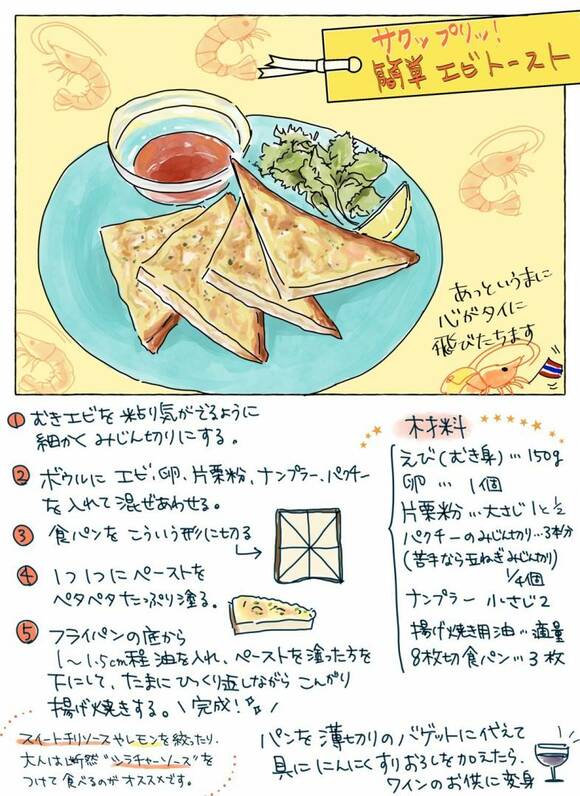 サクップリッ!
簡単 エビトースト
あっというまに
心がタイに
飛びたちます
① むきエビを 粘り気がでるように
細かく みじん切りにする。
② ボウルに エビ、卵、片栗粉、ナンプラー、パクチー
を入れて 混ぜあわせる。
③ 食パンを こういう形に切る
④ 1つ1つに ペーストを
ペタペタ たっぷり塗る。
⑤ フライパンの底から
1〜1.5cm程 油を入れ、ペーストを塗った方を
下にして、たまに ひっくり返しながら こんがり
揚げ焼きする。 \完成!
材料
えび(むき身)…150g
卵 … 1個
片栗粉…大さじ1と1/2
パクチーのみじん切り…3本分
(苦手なら玉ねぎみじん切り)
1/4個
ナンプラー 小さじ2
揚げ焼き用油…適量
8枚切食パン…3枚
スイートチリソースやレモンを絞ったり、
大人は断然"シラチャーソース"を
つけて食べるのが オススメです。
パンを 薄切りの バゲットに代えて
具に にんにくすりおろしを加えたら、
ワインのお供に変身